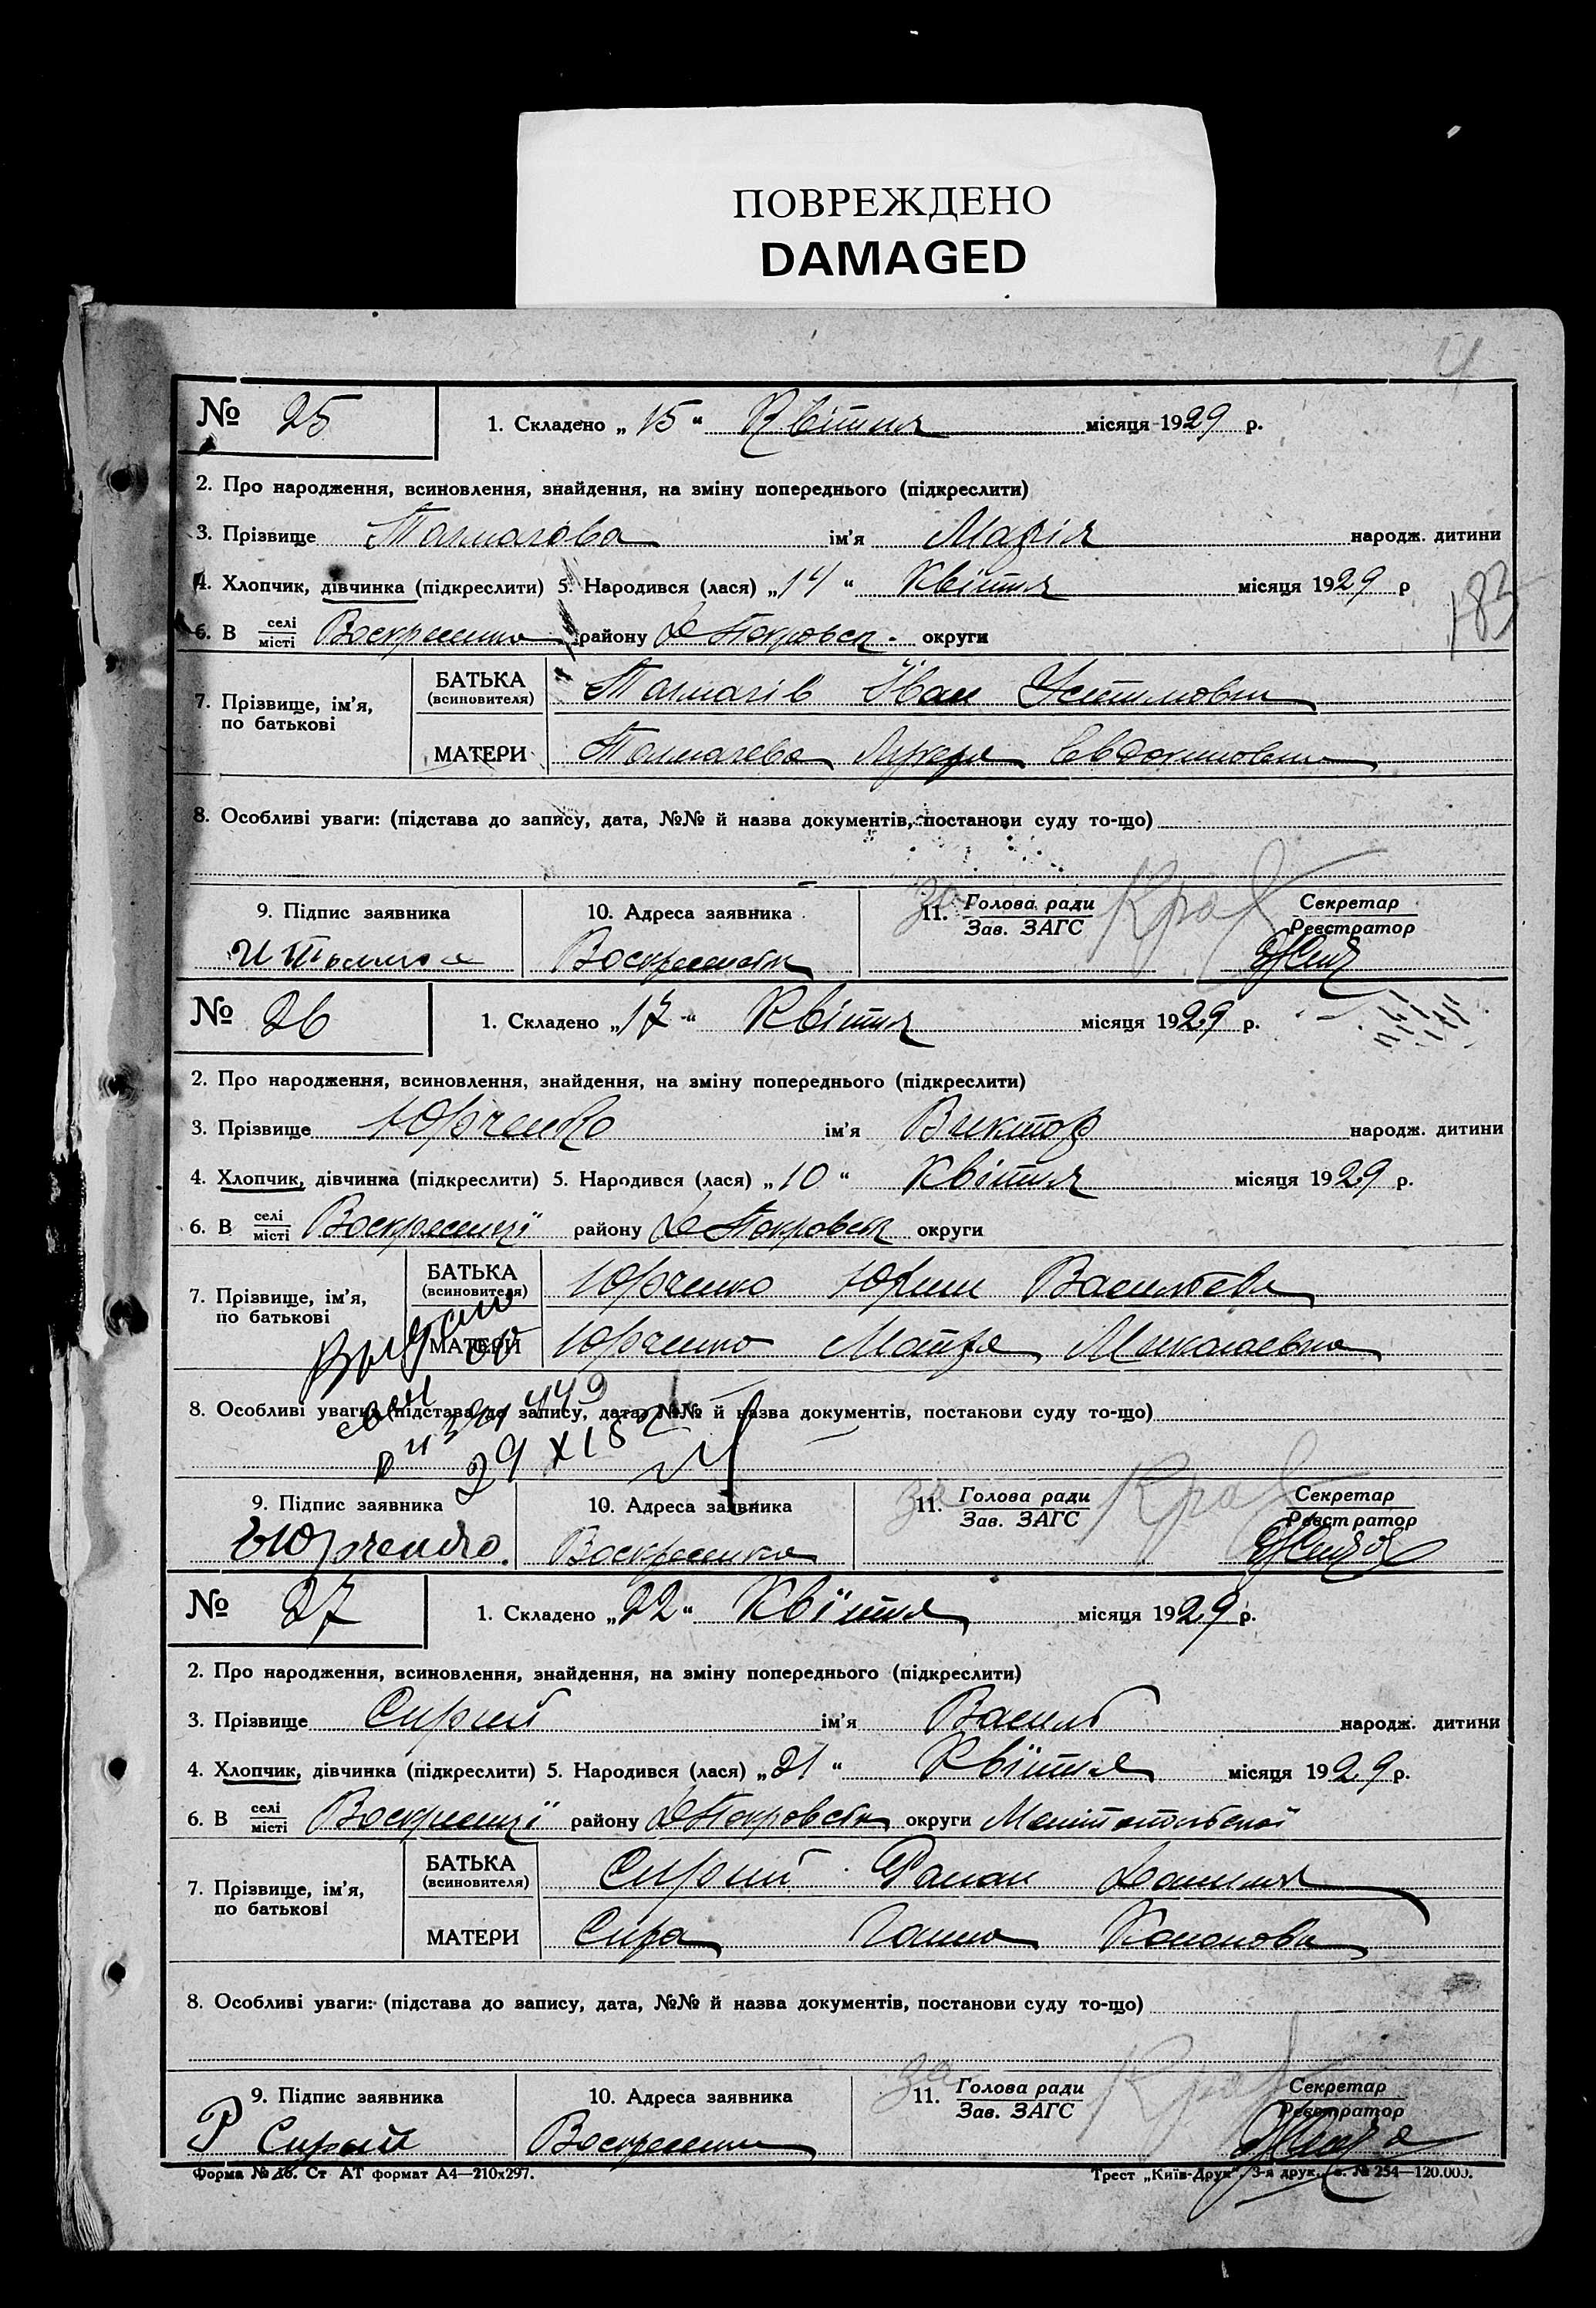 ПОВРЕЖДЕНО
DAMAGED
4
№ 25
1. Складено „15“ Квітня місяця 1929 р.
2. Про народження, всиновлення, знайдення, на зміну попереднього (підкреслити)
3. Прізвище Толмачова ім'я Марія народж. дитини
4. Хлопчик, дівчинка (підкреслити) 5. Народився (лася) „14“ Квітня місяця 1929 р
6. В селі/місті Воскресенка району Покровськ. округи
183
7. Прізвище, ім'я, по батькові
БАТЬКА (всиновителя) Толмачів Іван Устимович
МАТЕРИ Толмачева Лукеря Евдокимовна
8. Особливі уваги: (підстава до запису, дата, №№ й назва документів, постанови суду то-що)
9. Підпис заявника 10. Адреса заявника за 11. Голова ради / Зав. ЗАГС Секретар / Реєстратор
Воскресенка
№ 26
1. Складено „17“ Квітня місяця 1929 р.
2. Про народження, всиновлення, знайдення, на зміну попереднього (підкреслити)
3. Прізвище Юрченко ім'я Виктор народж. дитини
4. Хлопчик, дівчинка (підкреслити) 5. Народився (лася) „10“ Квітня місяця 1929 р.
6. В селі/місті Воскресенці району Покровськ округи
7. Прізвище, ім'я, по батькові
БАТЬКА (всиновителя) Юрченко Василіев
МАТЕРИ Юрченко Микалаевна
8. Особливі уваги: (підстава до запису, дата, №№ й назва документів, постанови суду то-що)
29 XI 52
9. Підпис заявника 10. Адреса заявника за 11. Голова ради / Зав. ЗАГС Секретар / Реєстратор
Юрченко. Воскресенка
№ 27
1. Складено „22“ Квітня місяця 1929 р.
2. Про народження, всиновлення, знайдення, на зміну попереднього (підкреслити)
3. Прізвище Сирий ім'я Василь народж. дитини
4. Хлопчик, дівчинка (підкреслити) 5. Народився (лася) „21“ Квітня місяця 1929 р.
6. В селі/місті Воскресенці району Покровськ округи Мелітопольської
7. Прізвище, ім'я, по батькові
БАТЬКА (всиновителя) Сирий Роман Данилов
МАТЕРИ Сира Ганна Кононовн
8. Особливі уваги: (підстава до запису, дата, №№ й назва документів, постанови суду то-що)
9. Підпис заявника 10. Адреса заявника за 11. Голова ради / Зав. ЗАГС Секретар / Реєстратор
Р Сирый Воскресенка
Форма № 16. Ст АТ формат А4—210х297. Трест „Київ-Друк“, 3-я друк., з. № 254—120.000.